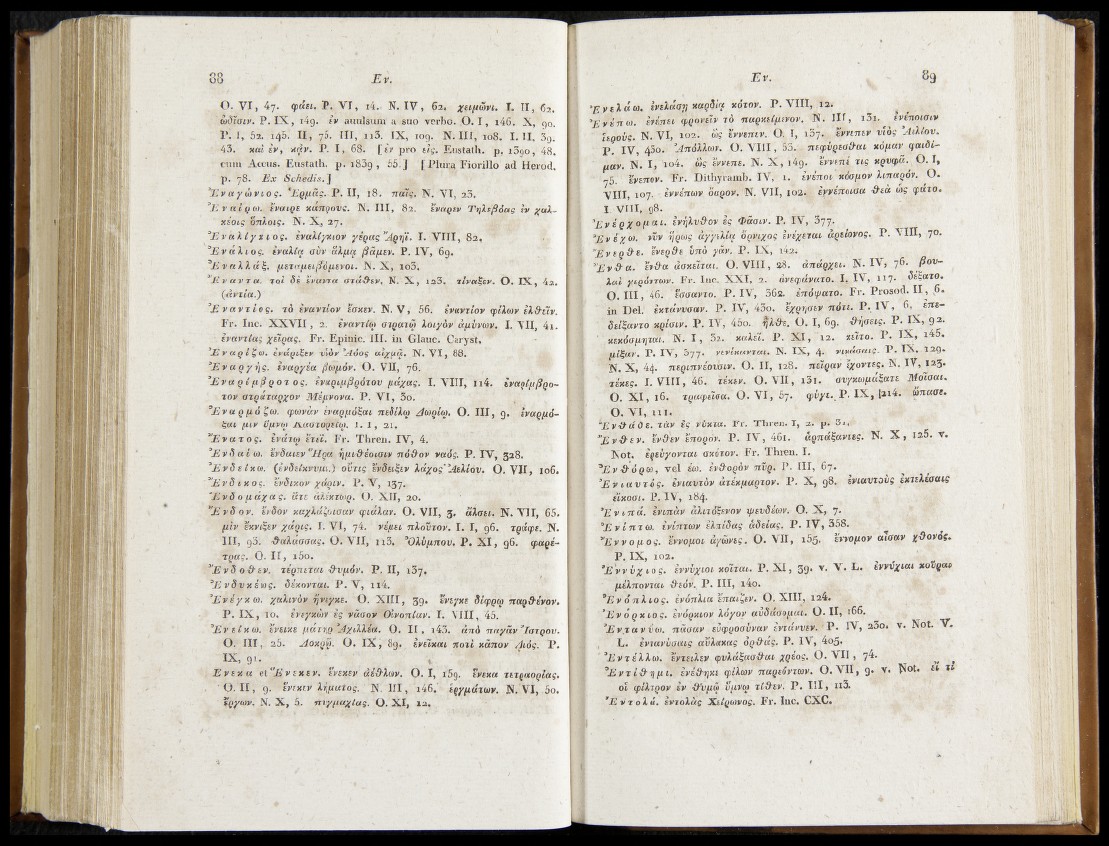 88 Εν.
O. VI, 47. φάει. P. VI, 14. N. IV, 62. χειμῶνι. I. II, 62.
ὠδῖσιν. P. IX, 149. ἐν auulsum a suo verbo. O. I, 146. X, 90.
P. I, 52. 145. II, 75. III, 113. IX, 109. N. III, 108. I. II, 39.
43. καὶ ἐν, κἀν. P. I, 68. [ἐν pro εἰς. Eustath. p. 1390, 48.
cum Accus. Eustath. p. 1839, 55.] [Plura Fiorillo ad Herod.
p. 78. Ex Schedis.]
Ἐναγώνιος. Ἑρμᾶς. P. II, 18. παῖς. N. VI, 23.
Ἐναίρω. ἔναιρε κάπρους. N. III, 82. ἔναρεν Τηλεβόας ἐν χαλ-
κέοις ὅπλοις. N. X, 27.
Ἐναλίγκιος. ἐναλίγκιον γέρας Ἄρηϊ. I. VIII, 82.
Ἐνάλιος. ἐναλίᾳ σὺν ἅλμᾳ βᾶμεν. P. IV, 69.
Ἐναλλάξ. μεταμειβόμενοι. N. X, 103.
Ἔναντα. τοὶ δὲ ἔναντα στάθεν. N. X, 123. τίναξεν. O. IX, 42.
(ἀντία.)
Ἐναντίος. τὸ ἐναντίον ἔσκεν. N. V, 56. ἐναντίον φίλων ἐλθεῖν.
Fr. Inc. XXVII, 2. ἐναντίῳ στρατῷ λοιγὸν ἀμύνων. I. VII, 41.
ἐναντίας χεῖρας. Fr. Epinic. III. in Glauc. Caryst.
Ἐναρίζω. ἐνάριξεν υἱὸν Ἀόος αἰχμᾷ. N. VI, 88.
Ἐναργής. ἐναργέα βωμόν. O. VII, 76.
Ἐναρίμβροτος. ἐναριμβρότου μάχας. I. VIII, 114. ἐναρίμβρο-
τον στράταρχον Μέμνονα. P. VI, 30.
Ἐναρμόζω. φωνὰν ἐναρμόξαι πεδίλῳ Δωρίῳ. O. III, 9. ἐναρμό-
ξαι μιν ὕμνῳ Καστορείῳ. I. I, 21.
Ἔνατος. ἐνάτῳ ἔτεϊ. Fr. Thren. IV, 4.
Ἐνδαίω. ἔνδαιεν Ἥρα ἡμιθέοισιν πόθον ναός. P. IV, 328.
Ἐνδείκω. (ἐνδείκνυμι.) οὔτις ἔνδειξεν λάχος Ἀελίου. O. VII, 106.
Ἔνδικος. ἔνδικον χάριν. P. V, 137.
Ἐνδομάχας. ἅτε ἀλέκτωρ. O. XII, 20.
Ἔνδον. ἔνδον καχλάζοισαν φιάλαν. O. VII, 3. ἄλσει. N. VII, 65.
μὶν ἔκνιξεν χάρις. I. VI, 74. νέμει πλοῦτον. I. I, 96. τράφε. N.
III, 93. θαλάσσας. O. VII, 113. Ὀλύμπου. P. XI, 96. φαρέ-
τρας. O. II, 150.
Ἔνδοθεν. τέρπεται θυμόν. P. II, 137.
Ἐνδυκέως. δέκονται. P. V, 114.
Ἐνέγκω. χαλινὸν ἤνιγκε. O. XIII, 39. ἔνεγκε δίφρῳ παρθένον.
P. IX, 10. ἐνεγκὼν ἐς νᾶσον Οἰνοπίαν. I. VIII, 45.
Ἐνείκω. ἔνεικε μάτηρ Ἀχιλλέα. O. II, 143. ἀπὸ παγᾶν Ἴστρου.
O. III, 25. Λοκρῷ. O. IX, 89. ἐνεῖκαι ποτὶ κᾶπον Διός. P.
IX, 91.
Ἕνεκα et Ἕνεκεν. ἕνεκεν ἀέθλων. O. I, 159. ἕνεκα τετραορίας.
O. II, 9. ἕνεκεν λήματος. N. III, 146. ἐργμάτων. N. VI, 50.
ἔργων. N. X, 5. πυγμαχίας. O. XI, 12.
Εν. 89
Ἐνελάω. ἐνελάσῃ καρδίᾳ κότον. P. VIII, 12.
Ἐνέπω. ἐνέπει φρονεῖν τὸ παρκείμενον. N. III, 131. ἐνέποισιν
ἱερούς. N. VI, 102. ὡς ἔννεπεν. O. I, 137. ἔννεπεν υἱὸς Ἀελίου.
P. IV, 430. Ἀπόλλων. O. VIII, 53. πεφύρεσθαι κόμαν φαιδί-
μαν. N. I, 104. ὣς ἔννεπε. N. X, 149. ἔννεπέ τις κρυφᾶ. O. I,
75. ἔνεπον. Fr. Dithyramb. IV, 1. ἐνέποι κόσμον λιπαρόν. O.
VIII, 107. ἐννέπων ὄαρον. N. VII, 102. ἐννέποισα θεὰ ὣς φάτο.
I. VIII, 98.
Ἐνέρχομαι. ἐνήλυθον ἐς Φᾶσιν. P. IV, 377.
Ἐνέχω. νῦν ἥρως ἀγγελίᾳ ὄρνιχος ἐνέχεται ἀρείονος. P. VIII, 70.
Ἔνερθε. ἔνερθε ὑπὸ γᾶν. P. IX, 142.
Ἔνθα. ἔνθα ἀσκεῖται. O. VIII, 28. ἀπάρχει. N. IV, 76. βου-
λαὶ γερόντων. Fr. Inc. XXI, 2. ἀνεφάνατο. I. IV, 117. δέξατο.
O. III, 46. ἔσσαντο. P. IV, 362. ἐπόψατο. Fr. Prosod. II, 6.
in Del. ἐκτάνυσαν. P. IV, 430. ἔχρησεν πότι. P. IV, 6. ἐπε-
δείξαντο κρίσιν. P. IV, 450. ἦλθε. O. I, 69. θήσεις. P. IX, 92.
κεκόσμηται. N. I, 32. καλεῖ. P. XI, 12. κεῖτο. P. IX, 145.
μίξαν. P. IV, 377. νενίκανται. N. IX, 4. νικάσαις. P. IX, 129.
N. X, 44. περιπνέοισιν. O. II, 128. πεῖραν ἔχοντες. N. IV, 123.
τέκες. I. VIII, 46. τέκεν. O. VII, 131. συγκωμάξατε Μοῖσαι.
O. XI, 16. τραφεῖσα. O. VI, 57. φύγε. P. IX, 214. ὤπασε.
O. VI, 111.
Ἐνθάδε. τὰν ἐς νύκτα. Fr. Thren. I, 2. p. 32.
Ἔνθεν. ἔνθεν ἔπορον. P. IV, 461. ἁρπάξαντες. N. X, 125. v.
Not. ἐρεύγονται σκότον. Fr. Thren. I.
Ἐνθόρω, vel έω. ἐνθορὸν πῦρ. P. III, 67.
Ἐνιαυτός. ἐνιαυτὸν ἀτέκμαρτον. P. X, 98. ἐνιαυτοὺς ἐκτελέσαις
εἴκοσι. P. IV, 184.
Ἐνιπά. ἐνιπὰν ἀλιτόξενον ψευδέων. O. X, 7.
Ἐνίπτω. ἐνίπτων ἐλπίδας ἁδείας. P. IV, 358.
Ἔννομος. ἔννομοι ἀγῶνες. O. VII, 155. ἔννομον αἶσαν χθονός.
P. IX, 102.
Ἐννύχιος. ἐννύχιοι κοῖται. P. XI, 39. v. V. L. ἐννύχιαι κοῦραι
μέλπονται θεόν. P. III, 140.
Ἐνόπλιος. ἐνόπλια ἔπαιζεν. O. XIII, 124.
Ἐνόρκιος. ἐνόρκιον λόγον αὐδάσομαι. O. II, 166.
Ἐντανύω. πᾶσαν εὐφροσύναν ἐντάνυεν. P. IV, 230. v. Not. V.
L. ἐντανύσαις αὔλακας ὀρθάς. P. IV, 405.
Ἐντέλλω. ἔντειλεν φυλάξασθαι χρέος. O. VII, 74.
Ἐντίθημι. ἐνέθηκε φίλων παρεόντων. O. VII, 9. v. Not. εἴ τί
οἱ φίλτρον ἐν θυμῷ ὕμνῳ τίθεν. P. III, 113.
Ἐντολά. ἐντολὰς Χείρωνος. Fr. Inc. CXC.